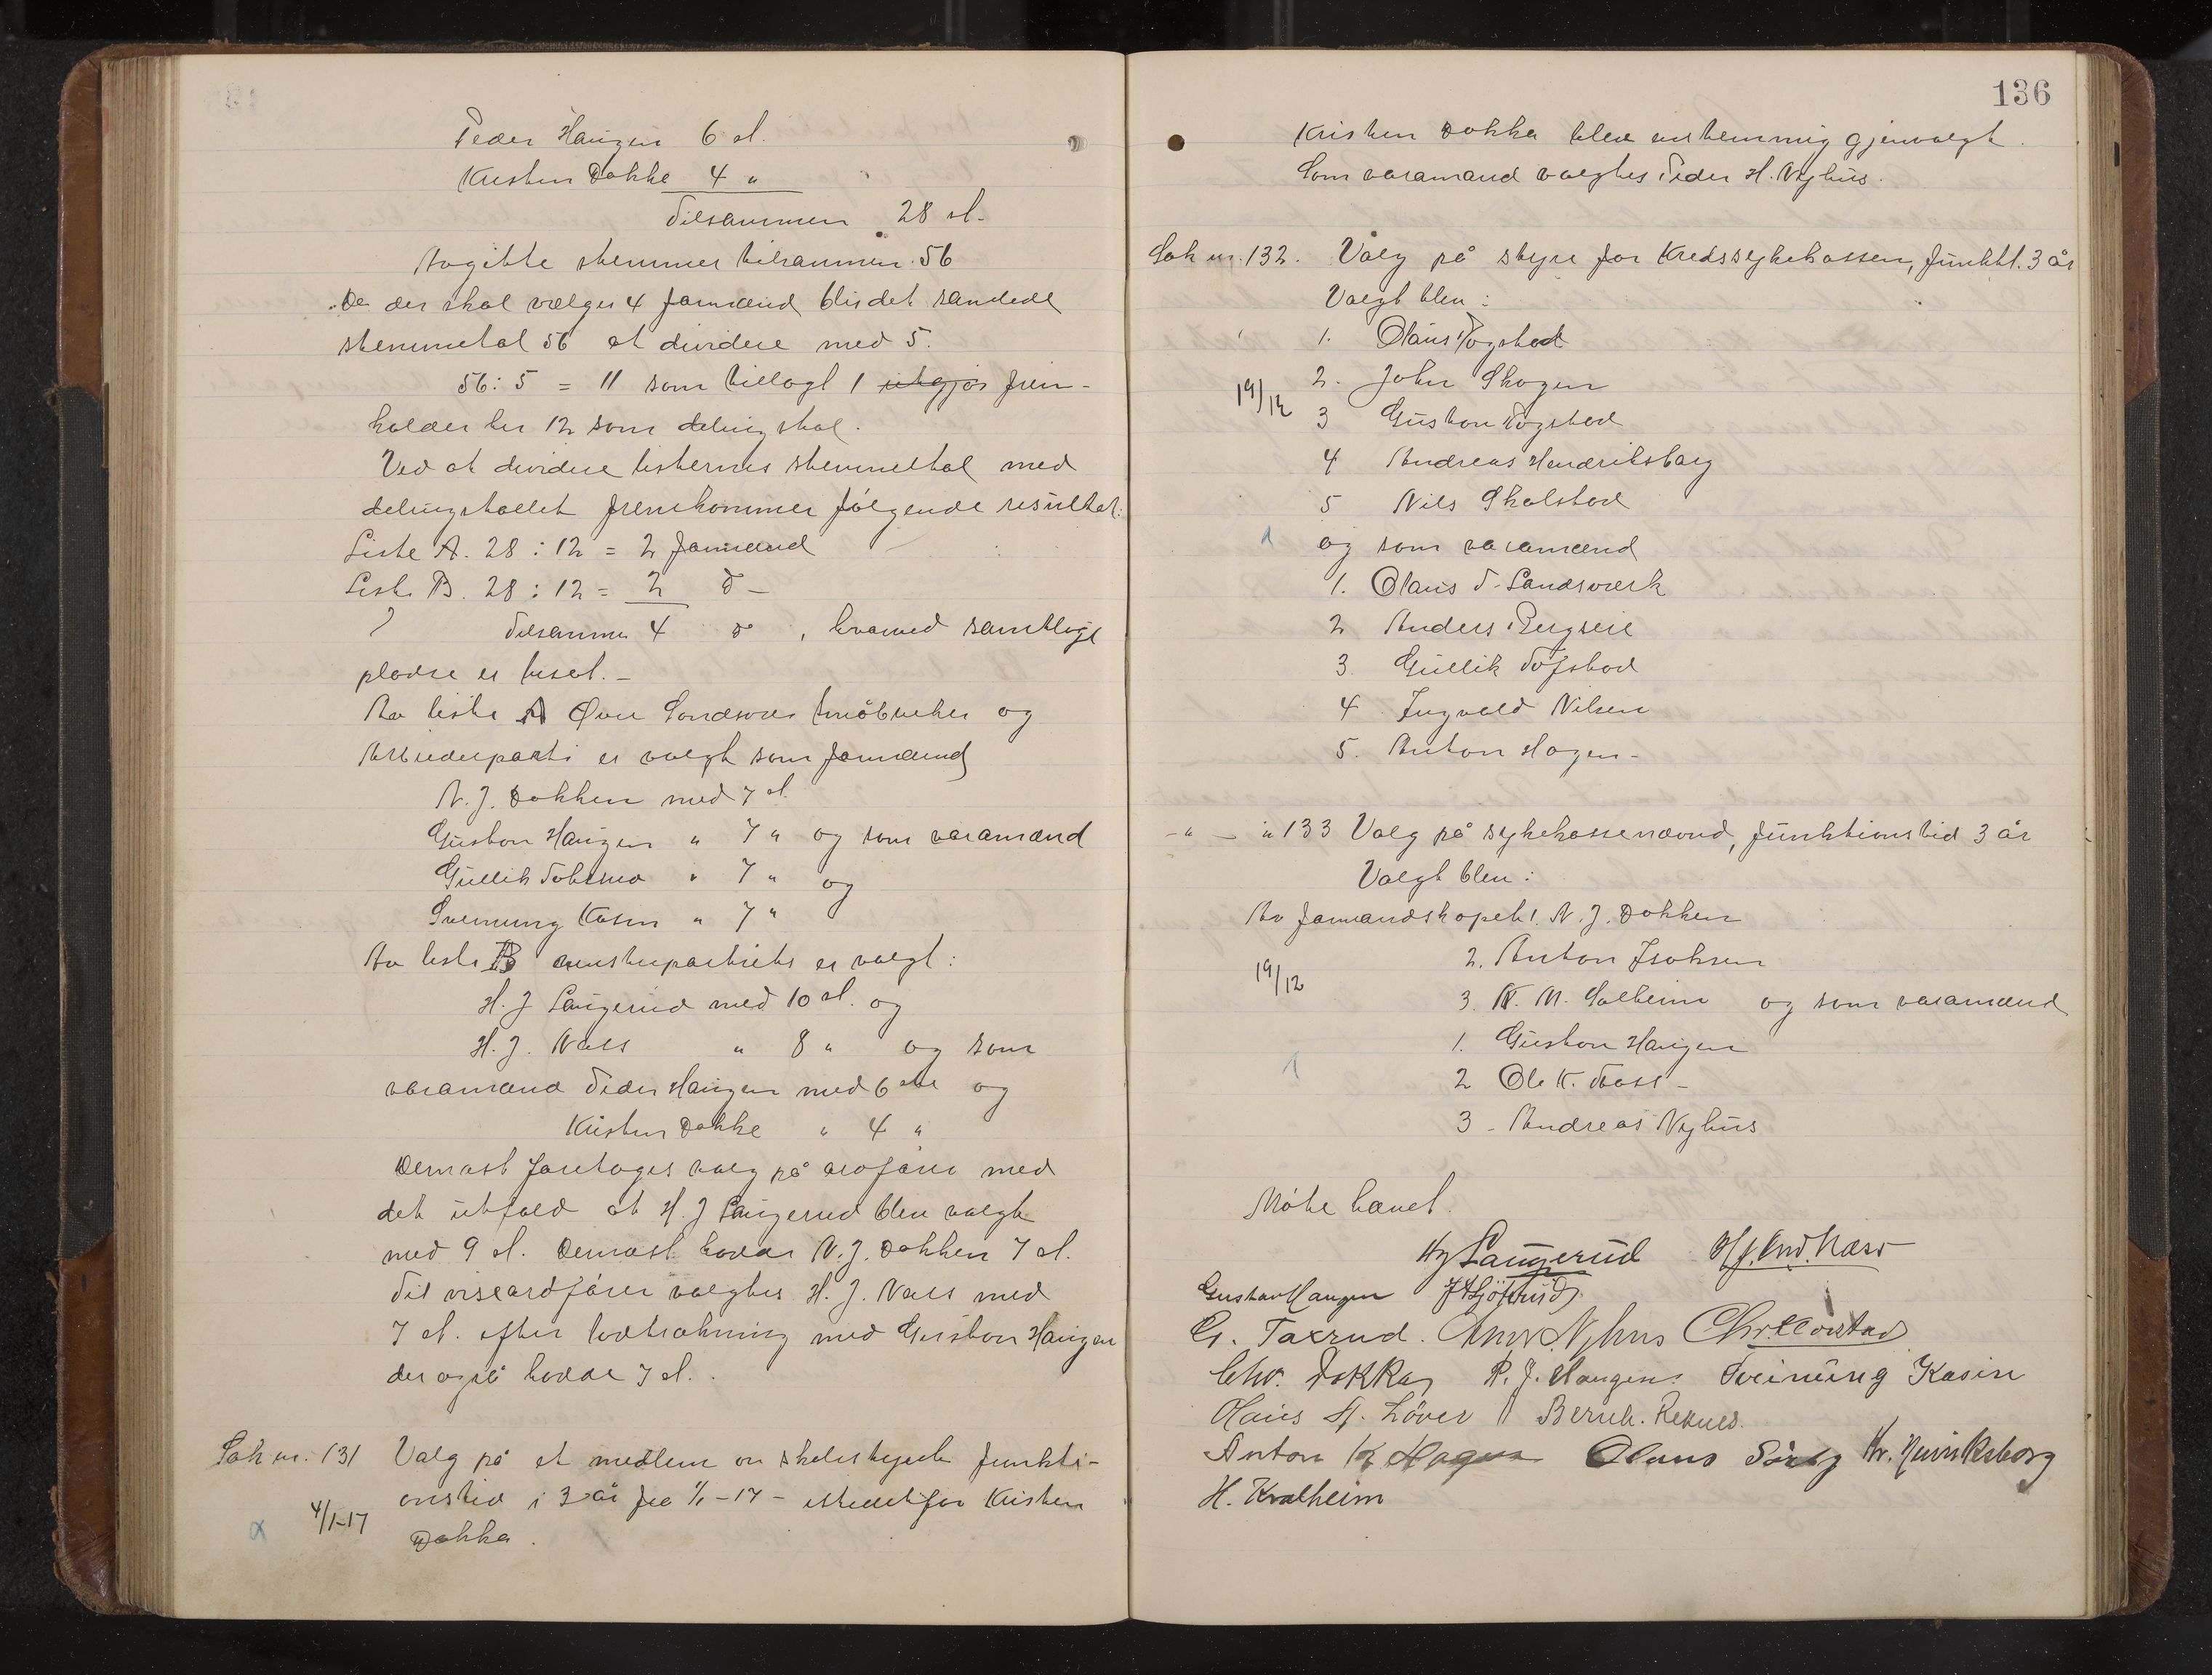 Peder Haugen 6 st.
Kristen Dokka 4 "
Tilsammen 28 st.
Avgitte stemmer tilsammen 56
Da der skal vælges 4 formænd blir det samlede
stemmetal 56 at dividere med 5.
56 : 5 = 11 som tillagt 1 utgjør frem-
holder her 12 som delingstal.
Ved at dividere listernes stemmetal med
delingstallet fremkommer følgende resultat:
Liste A. 28 : 12 = 2 formænd
Liste B. 28 : 12 = 2 d -
Tilsammen 4 d , hvormed samtlige
pladse er besat. -
Av liste A Øvre Sandsvær småbruker og
Arbeiderparti er valgt som formænd
N. J. Dokken med 7 st.
Gustav Haugen " 7 " og som varamænd
Gullik " 7 " og
Sveinung Kasin " 7 "
Av liste B venstrepartiets er valgt:
H. J. Laugerud med 10 st. og
H. J. Næss " 8 " og som
varamænd Peder Haugen med 6 og
Kristen Dokka " 4 "
Dernæst foretoges valg på ordfører med
det utfald at H. J. Laugerud blev valgt
med 9 st. Dernæst havde N. J. Dokken 7 st.
Til viseordfører valgtes H. J. Næss med
7 st. efter lodtrækning med Gustav Haugen
der også hadde 7 st.
Sak nr. 131 Valg på et medlem av skolestyret funkti-
onstid i 3 år fra 1/1-17 - istedetfor Kristen
4/1-17
Dokka.
136
Kristen Dokka blev enstemmig gjenvalgt.
Som varamand valgtes Peder H. Nyhus.
Sak nr. 132. Valg på styre for Kredssykekassen, funktt. 3 år
Valgt blev:
1. Olaus Togstad
2. John Skogen
19/12
3 Gustav Togstad
4 Andreas Hendriksborg
5 Nils Skalstad
og som varamænd
1. Olaus T. Landsverk
2 Anders Bergseie
3. Gullik Tofstad
4 Ingvald Nilsen
5. Anton Hagen -
- " - " 133 Valg på sykekassenævnd, funktionstid 3 år
Valgt blev:
Av formandskapet 1. N. J. Dokken
2. Anton Isaksen
19/12
3. K. M. Solheim og som varamænd
1. Gustav Haugen
2 Ole K. -
3 - Andreas Nyhus
Møte hævet.
HJ Laugerud H. J. And. Næss
Gustav Haugen
G. Taxrud. And. Nyhus
Chr. Dokka P. J. Haugen Sveinung Kasin
H. Løver Bernh.
Anton K Hagen Olaus Kr. Henriksborg
H. Kvalheim